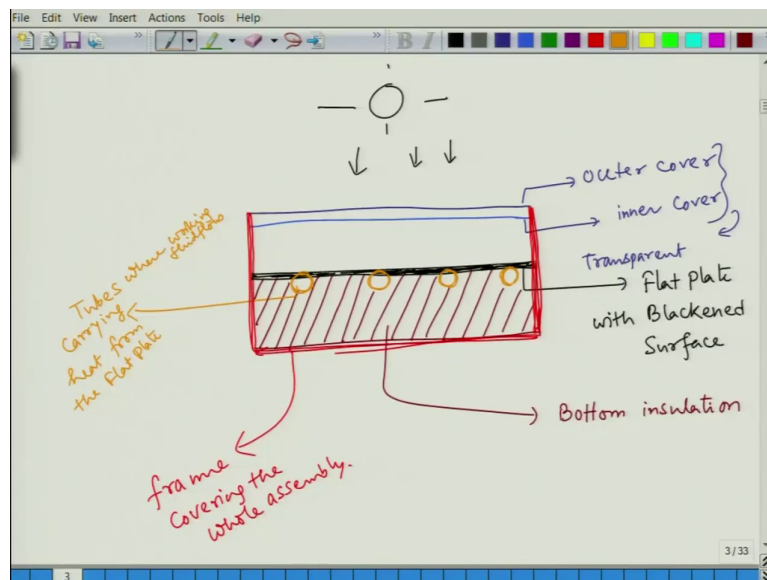 File Edit View Insert Actions Tools Help
B I
Outer cover
inner cover
Transparent
Flat plate
with Blackened
Surface
Tubes where working
fluid flows
Carrying
heat from
the Flat Plate
Bottom insulation
frame
covering the
whole assembly.
3/33
3